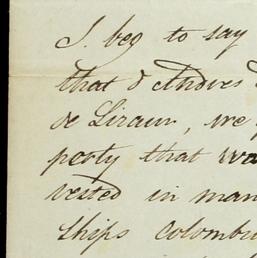 I beg to say
that d Andres
de Liraun, we
perty that wa
vested in man
Ships Colombu